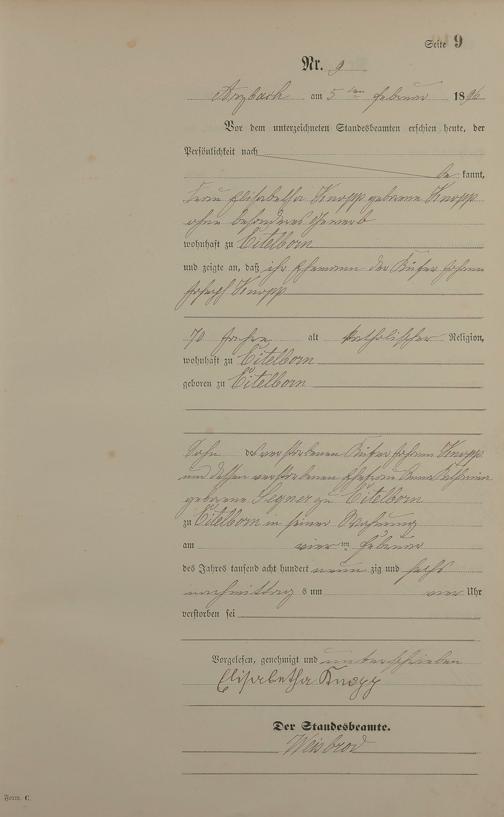 Seite 9
Nr. 9
Arzbach am 5ten Februar 1896
Vor dem unterzeichneten Standesbeamten erschien heute, der
Persönlichkeit nach
be kannt,
Frau Elisabetha Knopp geborene Knopp
ohne besonderes Gewerb
wohnhaft zu Eitelborn
und zeigte an, daß ihr Ehemann der Küfer Johann
Joseph Knopp
70 Jahre alt katholischer Religion,
wohnhaft zu Eitelborn
geboren zu Eitelborn
Sohn des verstorbenen Küfer Johann Knopp
und dessen verstorbenen Ehefrau Anna Katharina
geborene Segner zu Eitelborn
zu Eitelborn in seiner Wohnung
am vierten Februar
des Jahres tausend acht hundert neun zig und sechs
nachmittag s um vier Uhr
verstorben sei
Vorgelesen, genehmigt und unterschrieben
Elisabetha Knopp
Der Standesbeamte.
Weisbrod
Form. C.